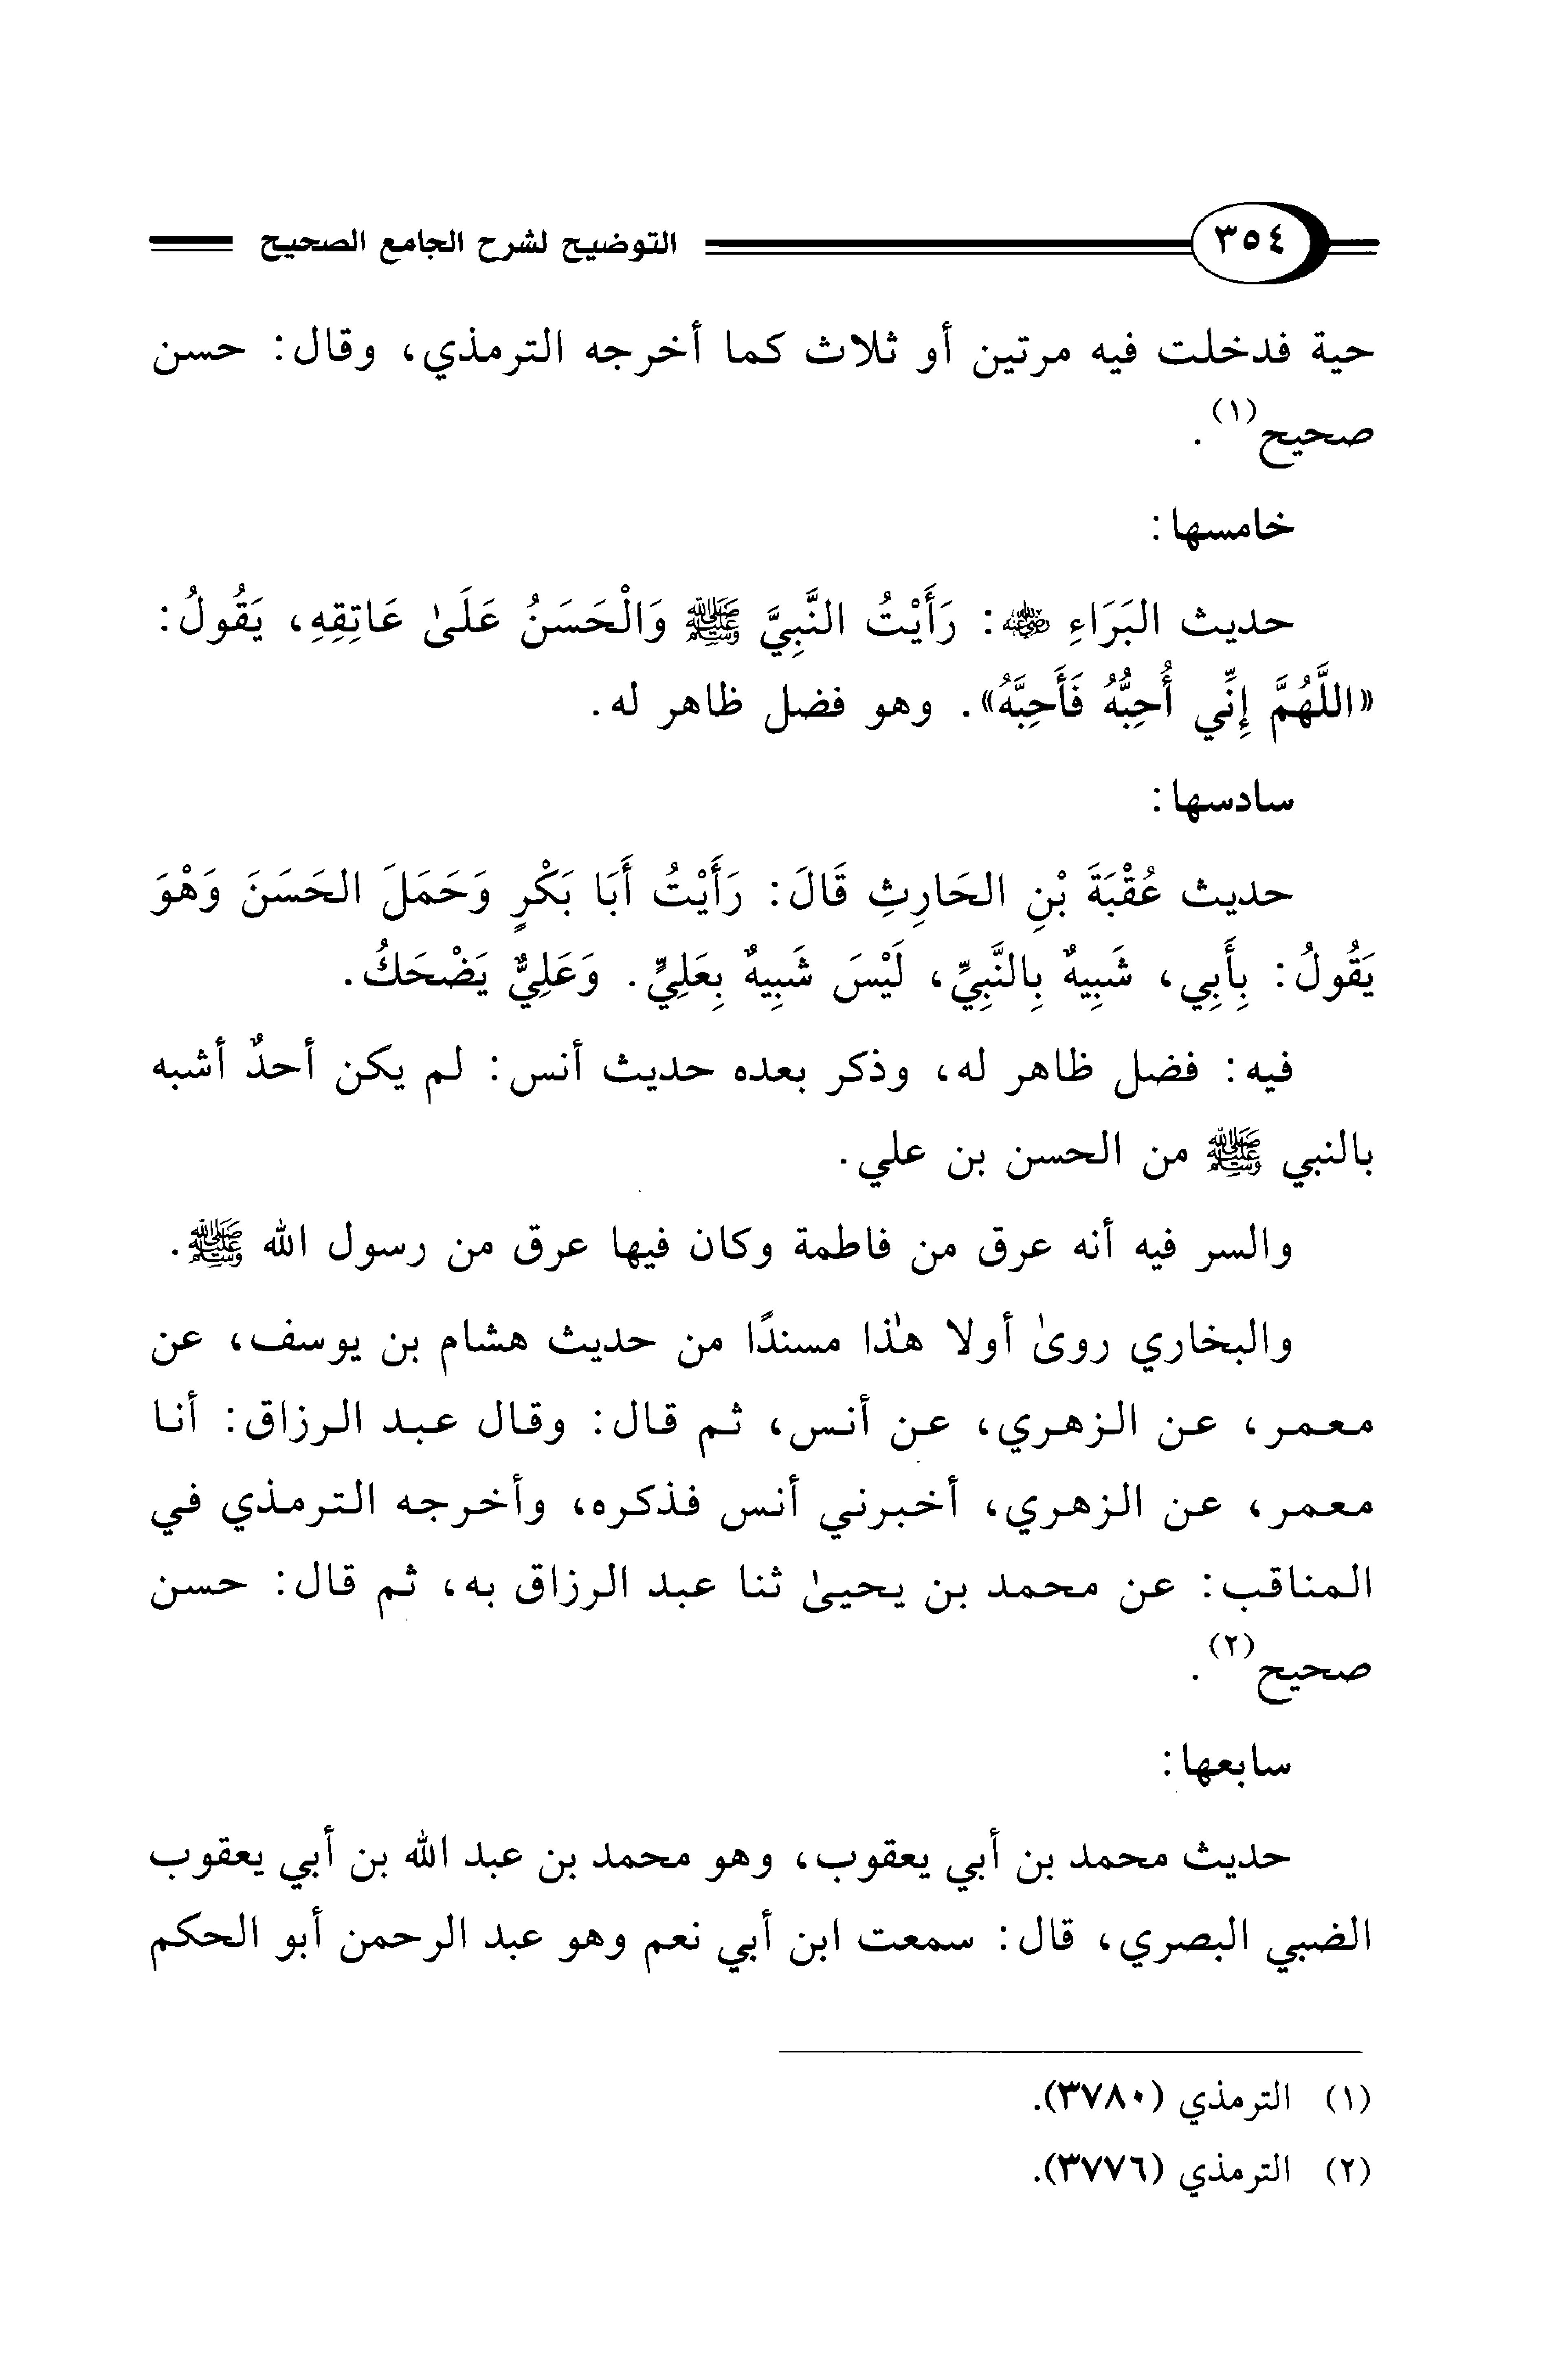 ٣٥٤ التوضيح لشرح الجامع الصحيح
حية فدخلت فيه مرتين أو ثلاث كما أخرجه الترمذي، وقال: حسن
صحيح(١).
خامسها:
حديث البَرَاءِ رضي الله عنه: رَأَيْتُ النَّبِيَّ ﷺ وَالْحَسَنُ عَلَىٰ عَاتِقِهِ، يَقُولُ:
«اللَّهُمَّ إِنِّي أُحِبُّهُ فَأَحِبَّهُ». وهو فضل ظاهر له.
سادسها:
حديث عُقْبَةَ بْنِ الحَارِثِ قَالَ: رَأَيْتُ أَبَا بَكْرٍ وَحَمَلَ الحَسَنَ وَهْوَ
يَقُولُ: بِأَبِي، شَبِيهٌ بِالنَّبِيِّ، لَيْسَ شَبِيهٌ بِعَلِيٍّ. وَعَلِيٌّ يَضْحَكُ.
فيه: فضل ظاهر له، وذكر بعده حديث أنس: لم يكن أحدٌ أشبه
بالنبي ﷺ من الحسن بن علي.
والسر فيه أنه عرق من فاطمة وكان فيها عرق من رسول الله ﷺ.
والبخاري روىٰ أولا هٰذا مسندًا من حديث هشام بن يوسف، عن
معمر، عن الزهري، عن أنس، ثم قال: وقال عبد الرزاق: أنا
معمر، عن الزهري، أخبرني أنس فذكره، وأخرجه الترمذي في
المناقب: عن محمد بن يحيىٰ ثنا عبد الرزاق به، ثم قال: حسن
صحيح(٢).
سابعها:
حديث محمد بن أبي يعقوب، وهو محمد بن عبد الله بن أبي يعقوب
الضبي البصري، قال: سمعت ابن أبي نعم وهو عبد الرحمن أبو الحكم
(١) الترمذي (٣٧٨٠).
(٢) الترمذي (٣٧٧٦).